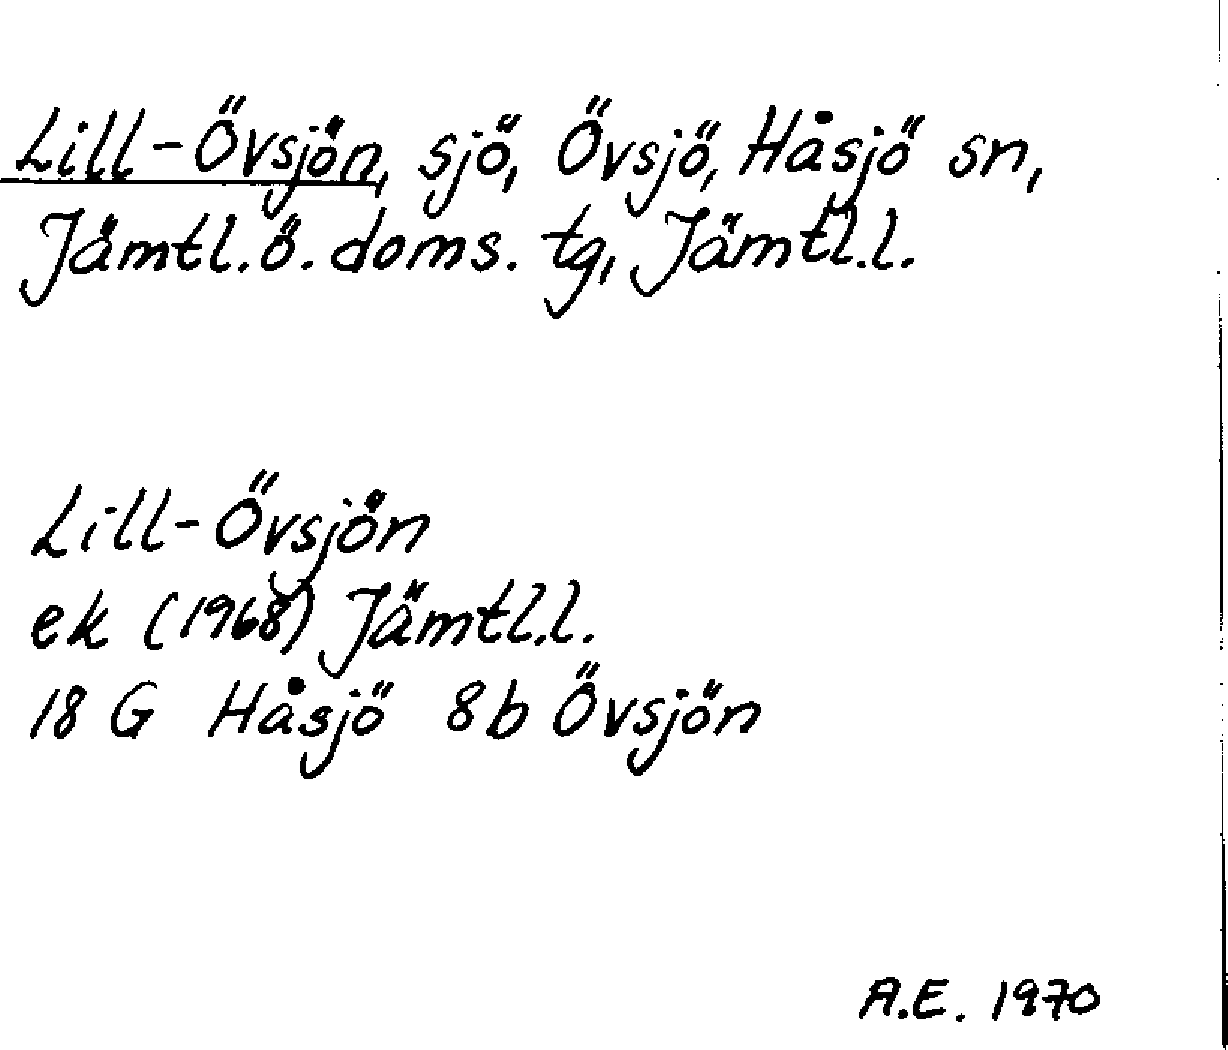 Lill-Övsjön, sjö, Övsjö, Håsjö sn,
Jämtl.ö.doms. tg, Jämtl.l.
Lill-Övsjön
ek (1968) Jämtl.l.
18 G Håsjö 8b Övsjön
A.E. 1970